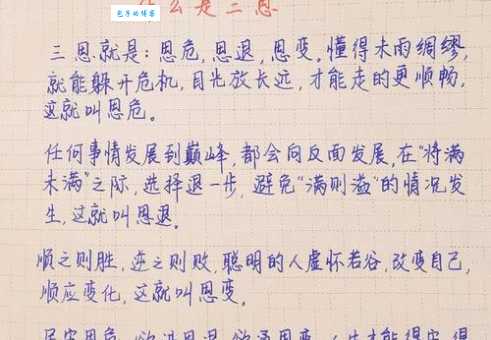 什么是三思
三思就是：思危，思退，思变。懂得未雨绸缪，
就能躲开危机，目光放长远，才能走的更顺畅，
这就叫思危。
任何事情发展到巅峰，都会向反面发展，在“将满
未满”之际，选择退一步，避免“满则溢”的情况发
生，这就叫思退。
顺之则胜，逆之则败，聪明的人虚怀若谷，改变自己，
顺应变化，这就叫思变。